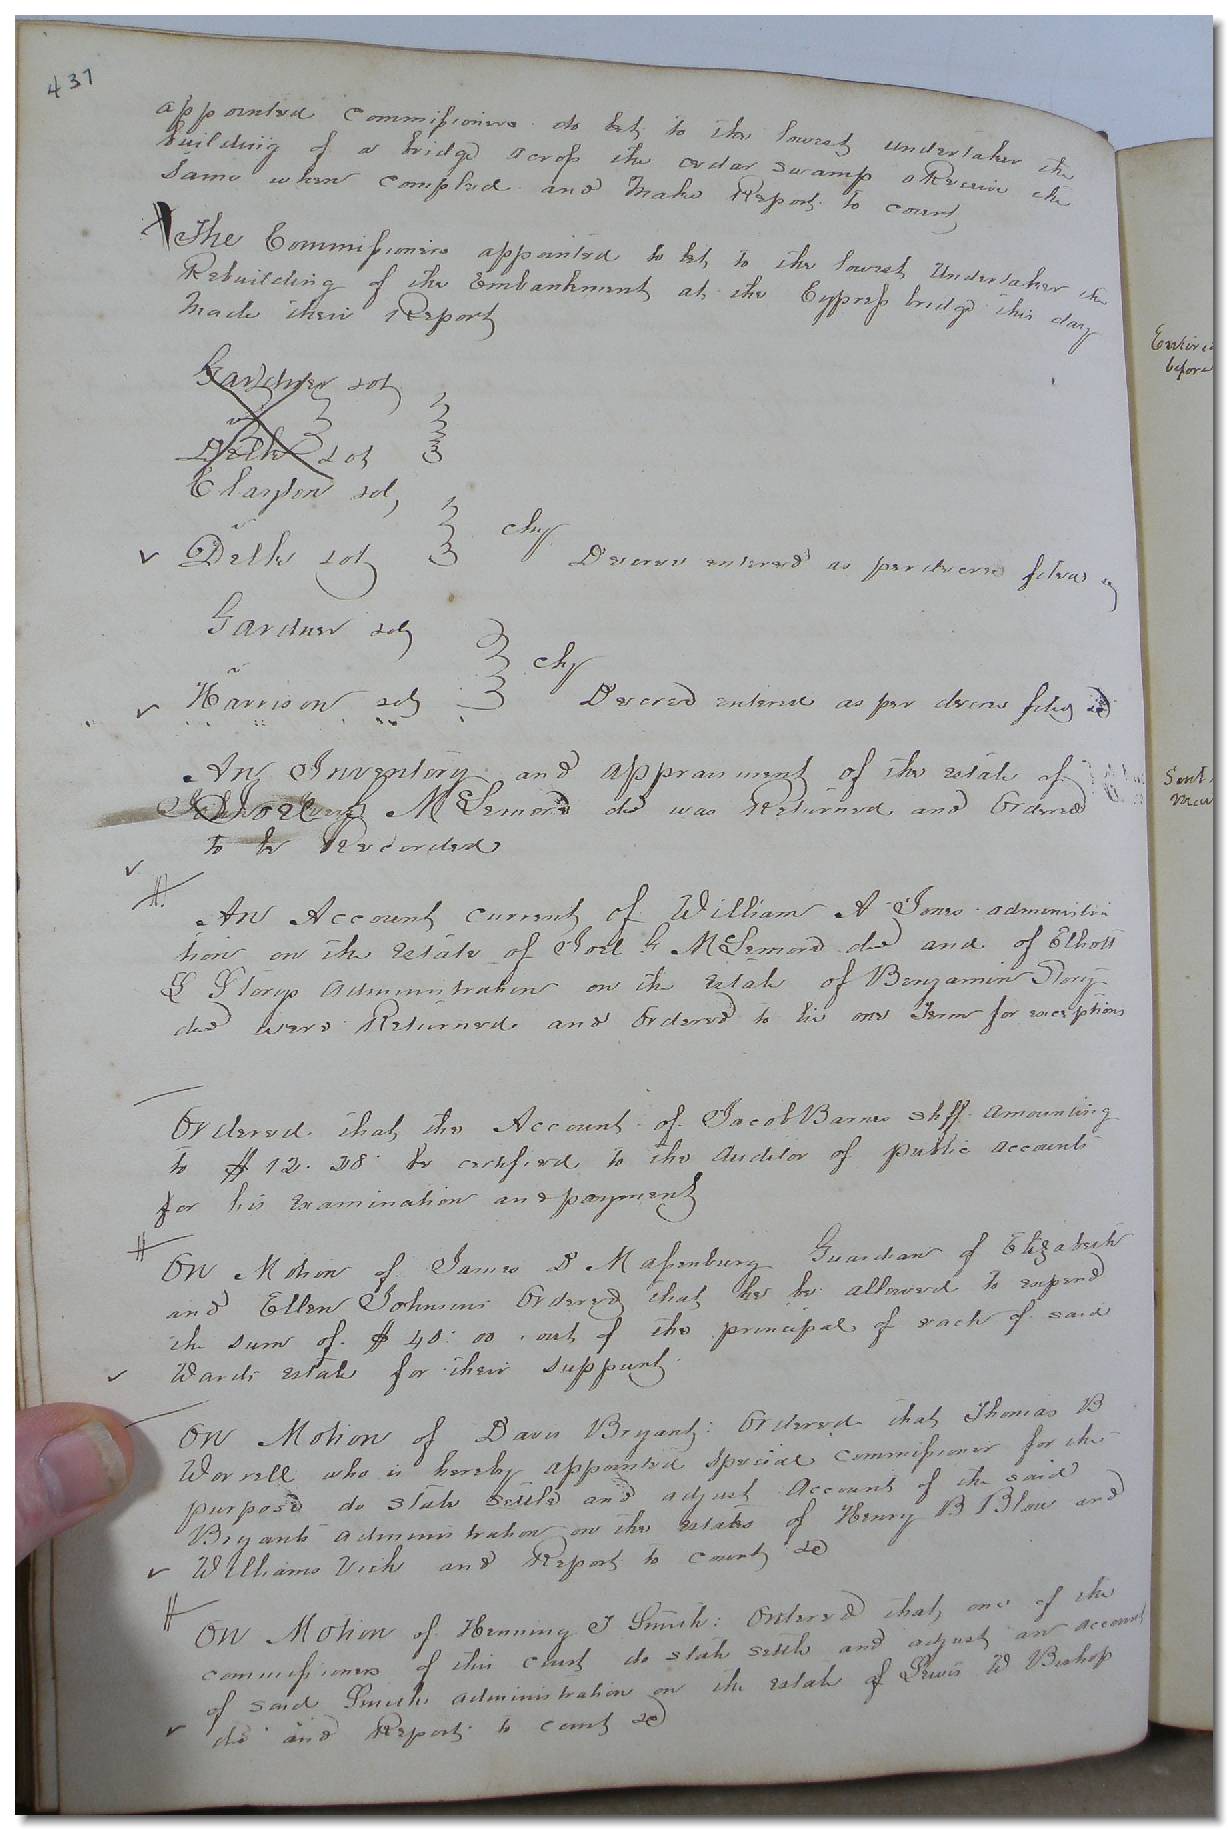 437
appointed commissioners do let to the lowest undertaker the
building of a bridge across the cedar swamp & Receive the
Same when compled and Make Report to court
The Commissioners appointed to let to the lowest Undertaker the
Rebuilding of the Embankment at the Cypress bridge this day
Made their Report
Gardner
vs
Delk
Clayton
v
Delk chy Decree entered as per decree filed
Gardner
v
Harrison chy Decreed entered as per decree filed
An Inventory and appraisment of the estate of
McLemore decd was Returned and Ordered
to be Recorded
An Account current of William A Jones administra
tion on the estate of Joel G McLemore decd and of Elliott
L Storys administration on the estate of Benjamin Story
decd were Returned and Ordered to lie one Term for exceptions
Ordered that the Account of Jacob Barnes Shff amounting
to $12.28 be certified to the Auditor of public accounts
for his examination and payment
On Motion of James D Massenburg Guardian of Elizabeth
and Ellen Johnson Ordered that he be allowed to expend
the sum of $40:00 out of the principal of each of said
Wards estate for their suppunt
On Motion of Davis Bryant: Ordered that Thomas B
Worrell who is hereby appointed special commissioner for the
purpose do state settle and adjust Account of the said
Bryants administration on the estates of Henry B Blow and
Williams Vick and Report to court &c
On Motion of Henning T Smith: Ordered that one of the
commissioners of this court do state settle and adjust an account
of said Smiths administration on the estate of Lewis W Bishop
decd and Report to court &c
before